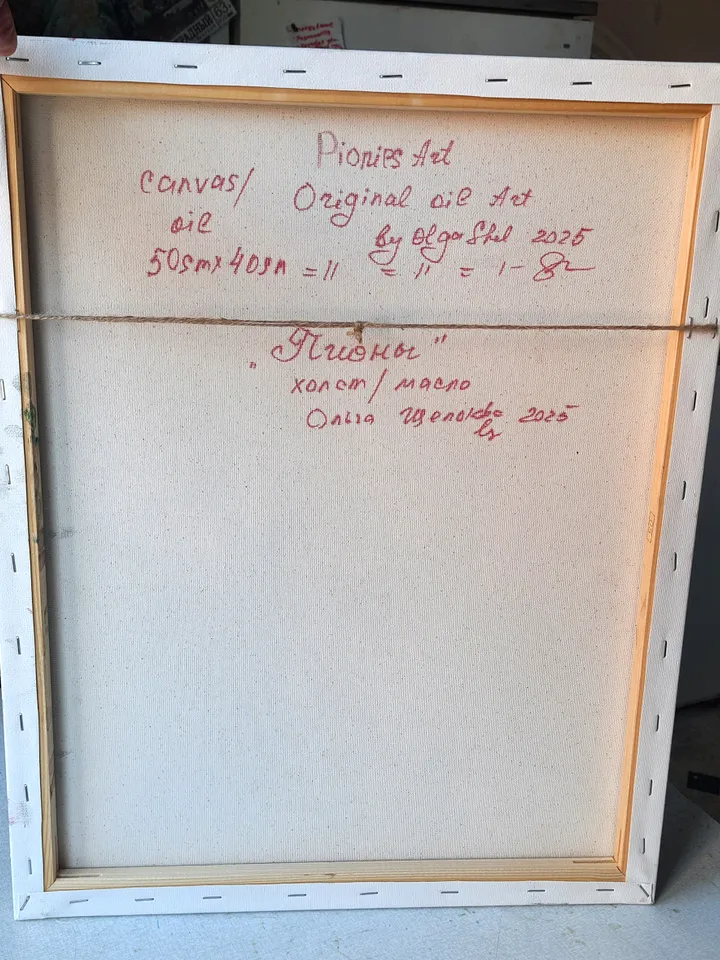 Pionies Art
canvas/ Original oil Art
oil by Olga Shel 2025
50sm x 40sm = 11 = 11 =
„Пионы"
холст/ масло
Ольга Щелок 2025